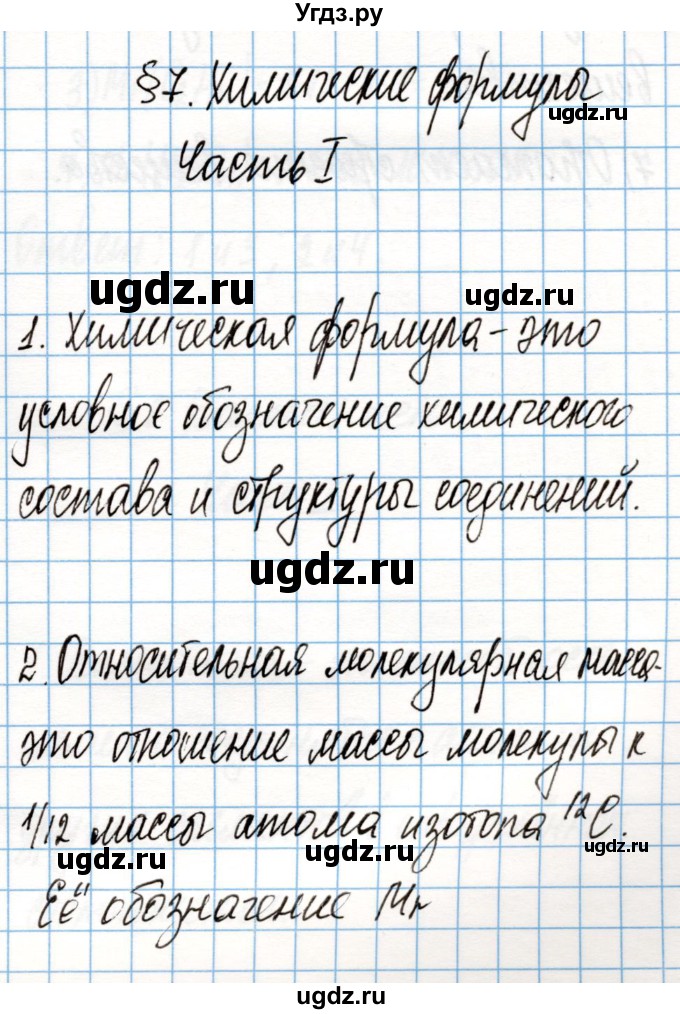 Угдз.ру
§7. Химические формулы
ugdz.ru
Часть I
ugdz.ru ugdz.ru
1. Химическая формула – это
условное обозначение химического
состава и структуры соединений.
ugdz.ru
2. Относительная молекулярная масса-
это отношение массы молекулы к
1/12 массы атома изотопа ¹²C.
ugdz.ru ugdz.ru ugdz.ru
Её обозначение Mr
ugdz.ru